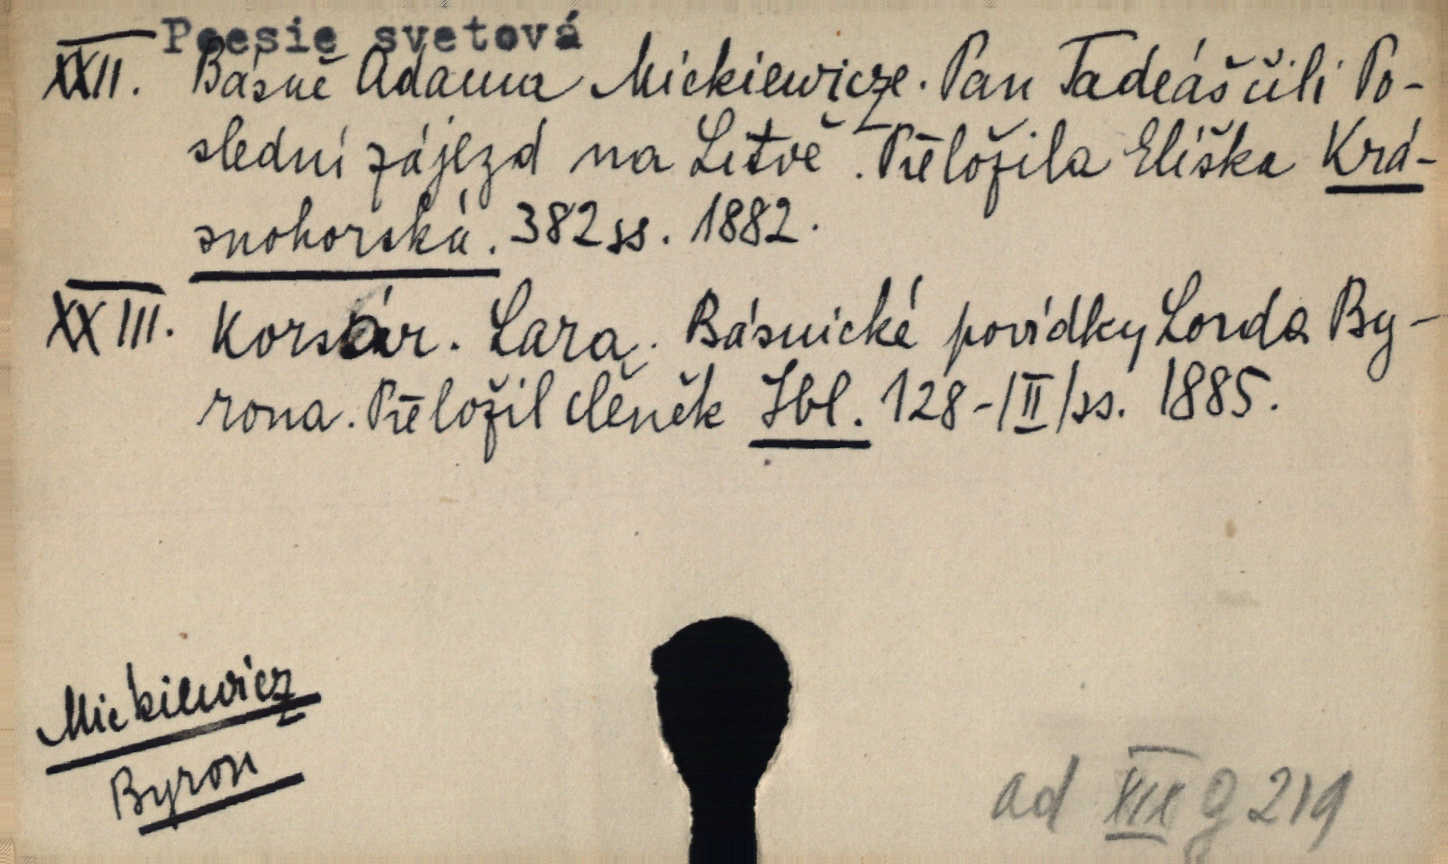 Poesie svetová
XXII. Básně Adama Mickiewicze. Pan Tadeáš čili Po-
slední zájezd na Litvě. Přeložila Eliška Krá-
snohorská. 382 ss. 1882.
XXIII. Korsár. Lara. Básnické povídky Lorda By-
rona. Přeložil Čeněk Ibl. 128-/II/ss. 1885.
Mickiewicz
Byron
ad XIX g 219